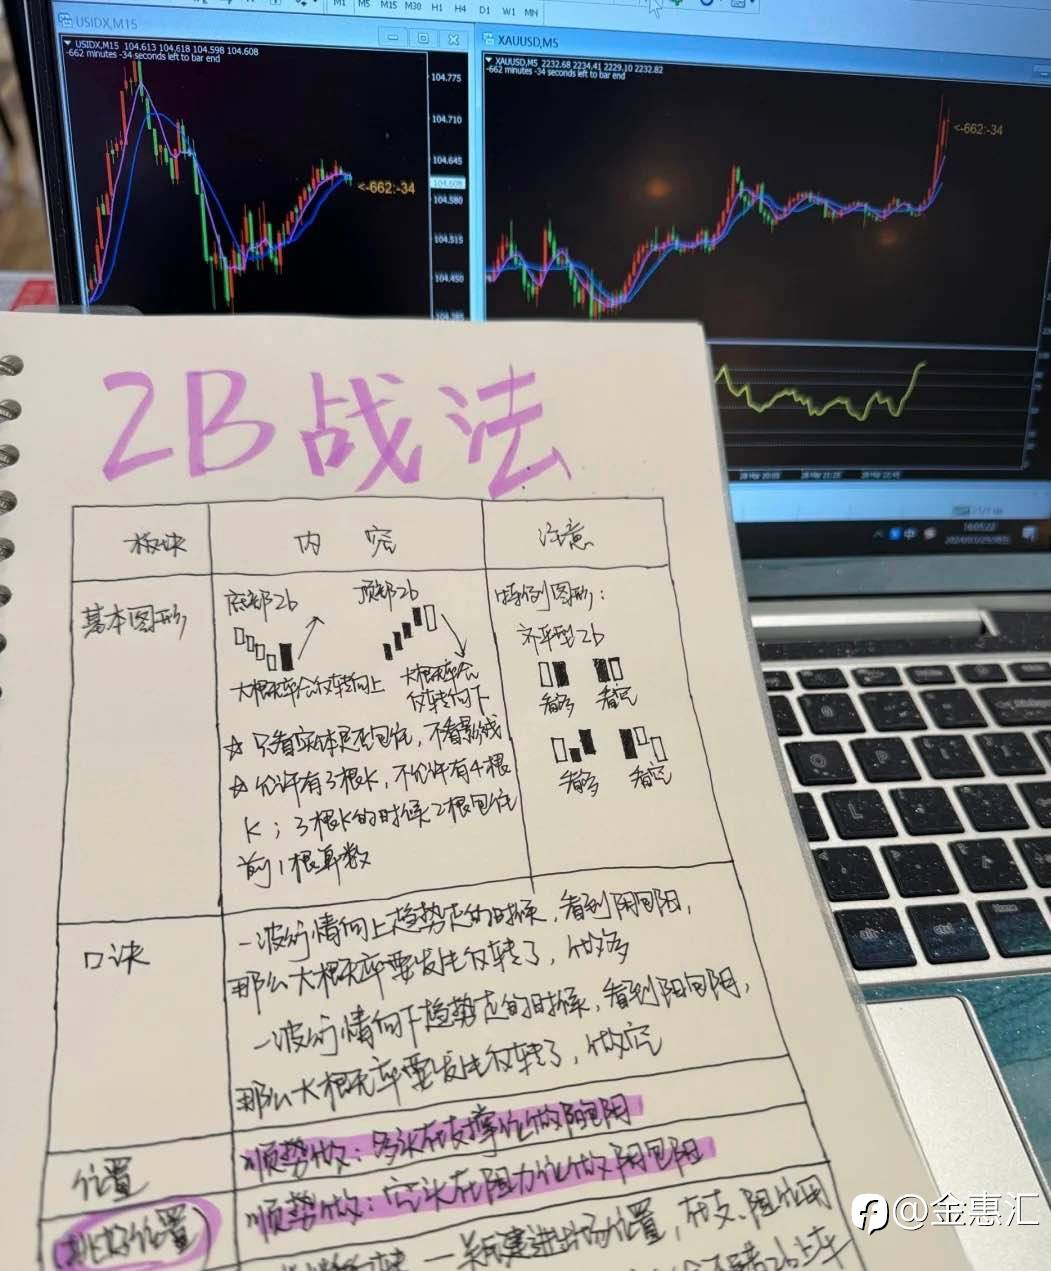 M1 M5 M15 M30 H1 H4 D1 W1 MN
USIDX,M15
USIDX,M15 104.613 104.618 104.598 104.608
-662 minutes -34 seconds left to bar end
104.775
104.710
104.645
104.608
104.580
104.515
104.450
104.385
<-662:-34
XAUUSD,M5
XAUUSD,M5 2232.68 2234.41 2229.10 2232.82
-662 minutes -34 seconds left to bar end
<-662:-34
2B战法
板块
内容
注意
基本图形
底部2b
顶部2b
大概率会反转向上
大概率会
反转向下
☆ 只看实体是否包住,不看影线
☆ 允许有3根K,不允许有4根
K;3根K的时候2根包住
前1根算数
特例图形:
齐平型2b
看多 看空
看多 看空
口诀
一波行情向上趋势走的时候,看到阴包阳,
那么大概率要发生反转了,做多
一波行情向下趋势走的时候,看到阳包阴,
那么大概率要发生反转了,做空
位置
顺势做:多头在支撑位做阳包阴
顺势做:空头在阻力位做阴包阳
挑好位置
关键进出场位置,在支、阻位用
@金惠汇